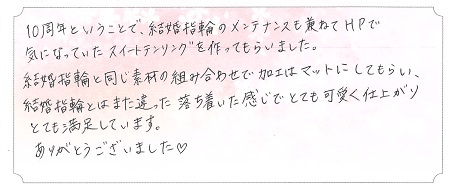 10周年ということで、結婚指輪のメンテナンスも兼ねてHPで
気になっていたスイートテンリングを作ってもらいました。
結婚指輪と同じ素材の組み合わせで加工はマットにしてもらい、
結婚指輪とはまた違った落ち着いた感じでとても可愛く仕上がり
とても満足しています。
ありがとうございました♡